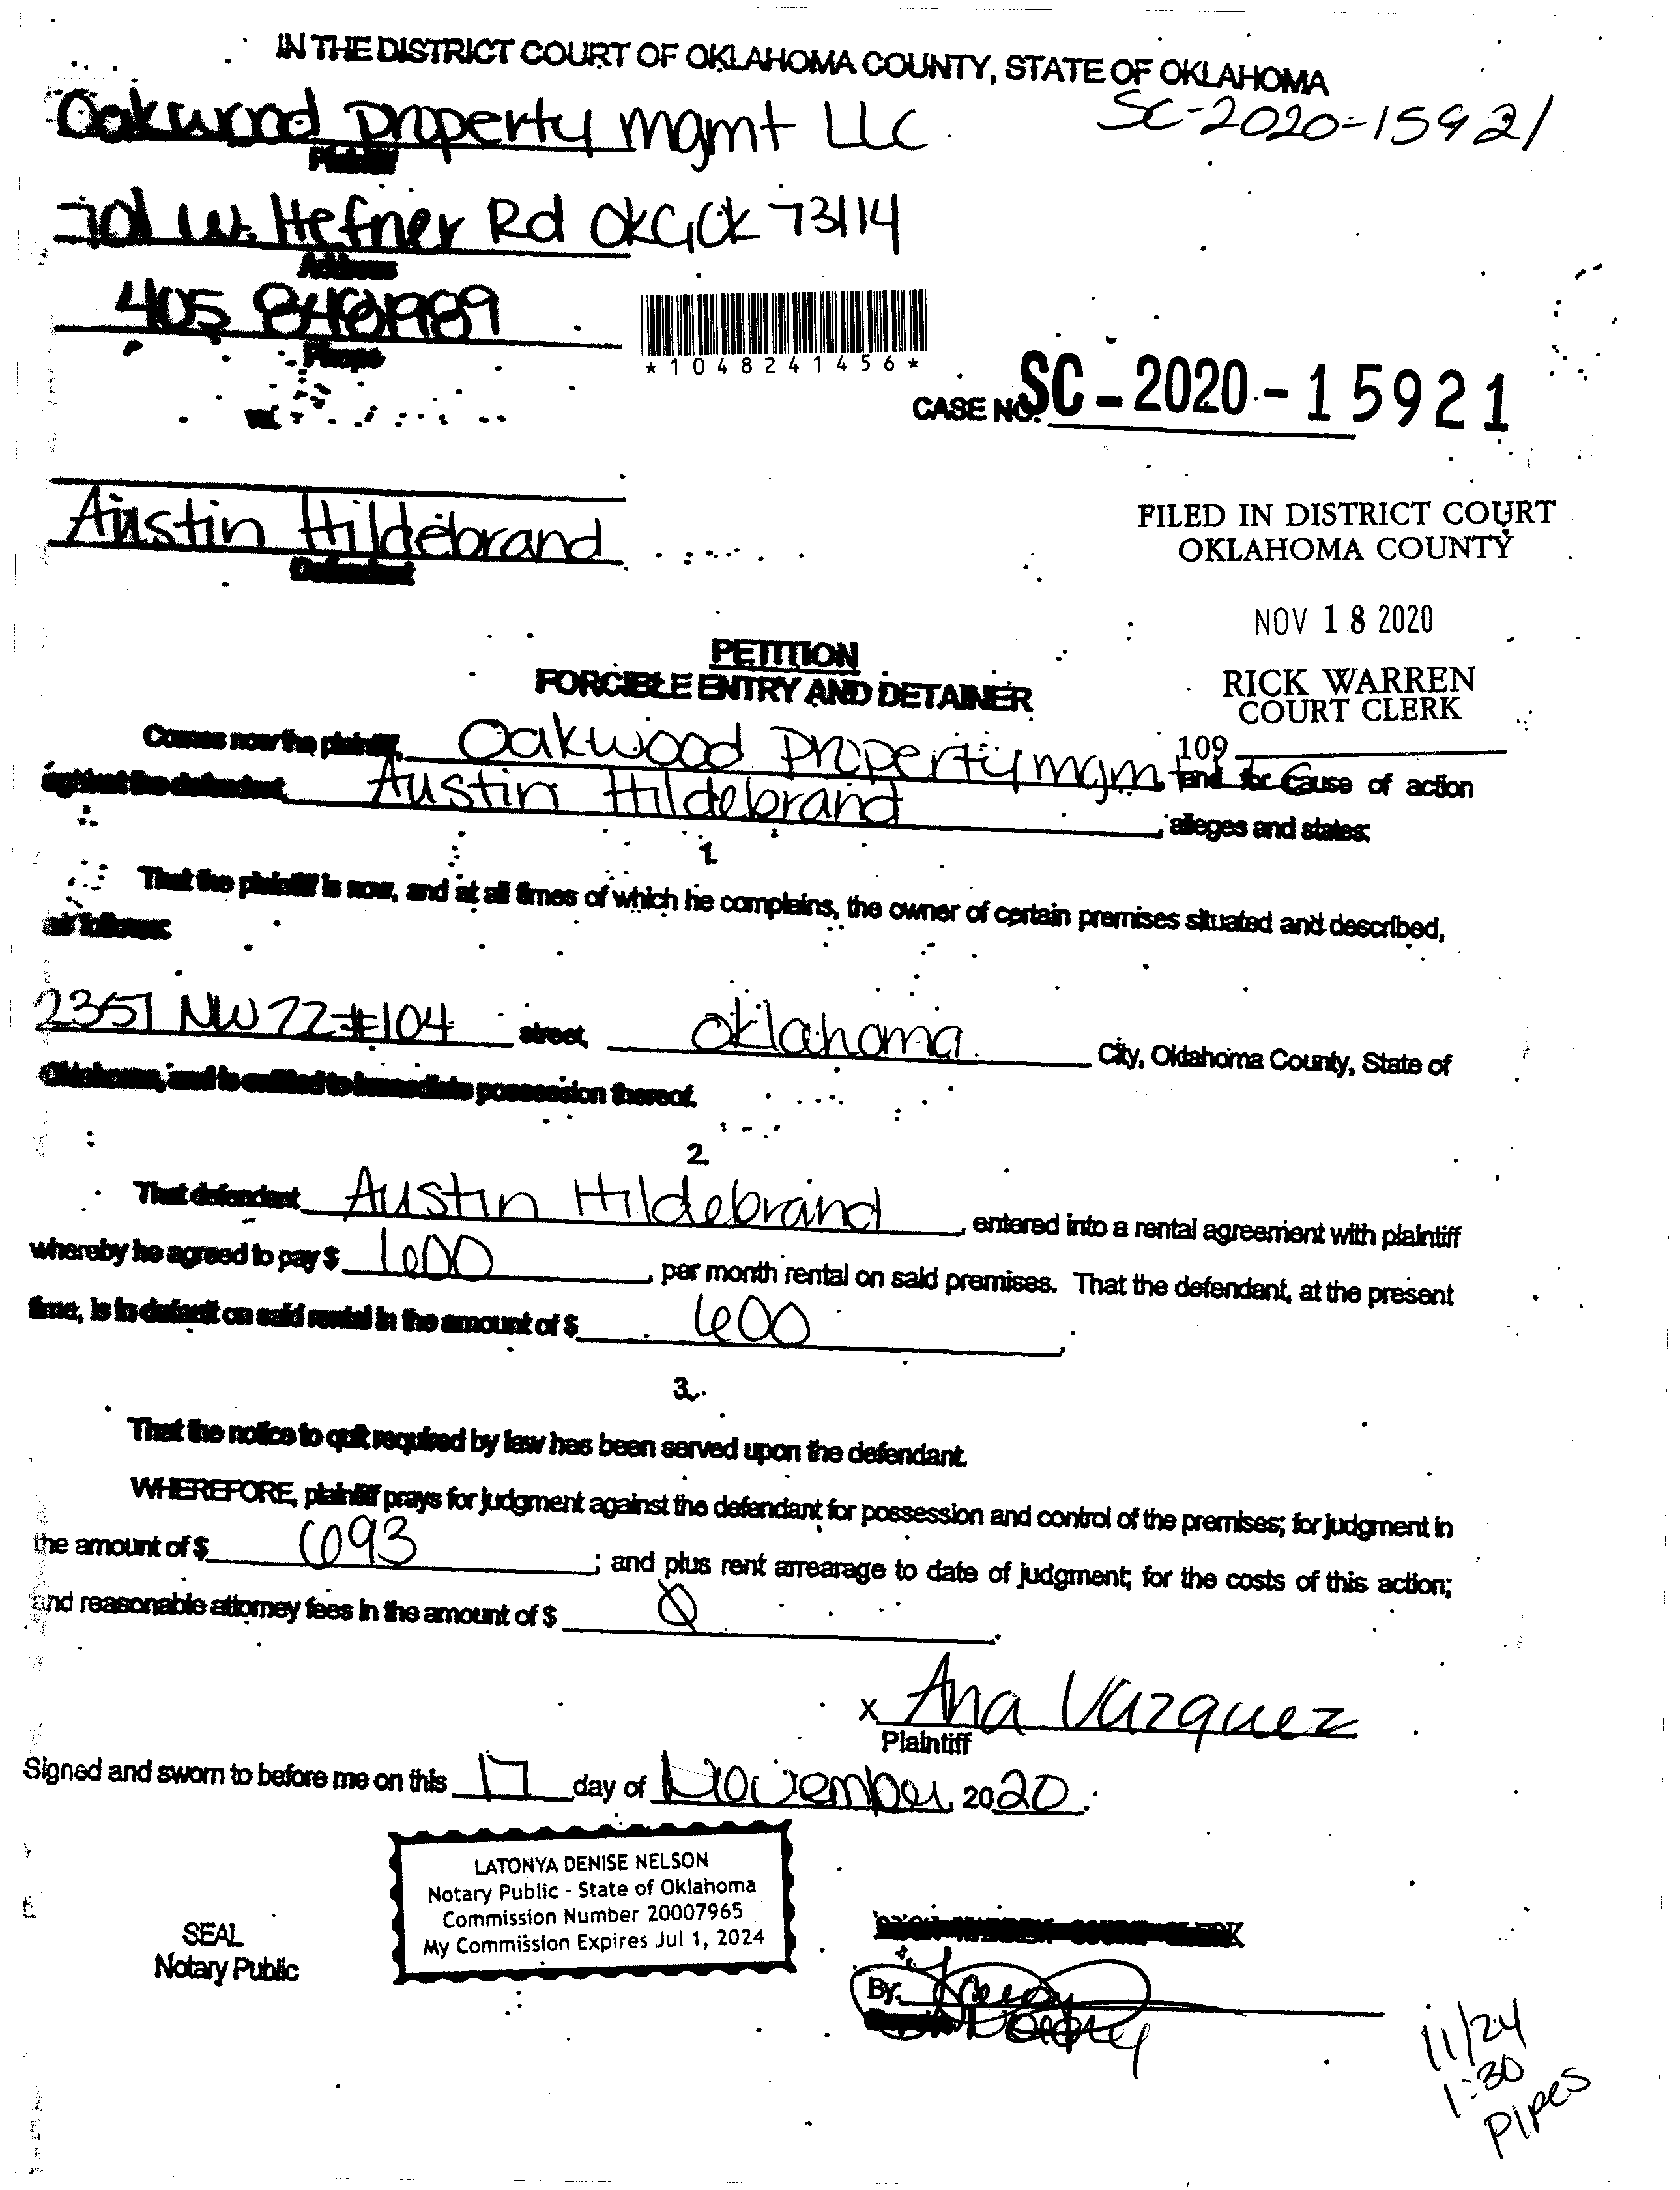 IN THE DISTRICT COURT OF OKLAHOMA COUNTY, STATE OF OKLAHOMA
Oakwood Property mgmt LLC
SC-2020-15921
Plaintiff
701 W. Hefner Rd OKC, OK 73114
Address
405 8481989
Phone
*1048241456*
CASE NO. SC-2020-15921
vs.
Austin Hildebrand
Defendant
FILED IN DISTRICT COURT
OKLAHOMA COUNTY
NOV 18 2020
RICK WARREN
COURT CLERK
109
PETITION
FORCIBLE ENTRY AND DETAINER
Comes now the plaintiff, Oakwood Property mgmt LLC, and for cause of action
against the defendant, Austin Hildebrand, alleges and states:
1.
That the plaintiff is now, and at all times of which he complains, the owner of certain premises situated and described,
as follows:
2351 NW 22 #104 street, Oklahoma City, Oklahoma County, State of
Oklahoma, and is entitled to immediate possession thereof.
2.
That defendant Austin Hildebrand, entered into a rental agreement with plaintiff
whereby he agreed to pay $ 600, per month rental on said premises. That the defendant, at the present
time, is in default on said rental in the amount of $ 600.
3.
That the notice to quit required by law has been served upon the defendant.
WHEREFORE, plaintiff prays for judgment against the defendant for possession and control of the premises; for judgment in
the amount of $ 693; and plus rent arrearage to date of judgment; for the costs of this action;
and reasonable attorney fees in the amount of $ 0.
x Ana Vazquez
Plaintiff
Signed and sworn to before me on this 17 day of November, 2020.
LATONYA DENISE NELSON
Notary Public - State of Oklahoma
Commission Number 20007965
My Commission Expires Jul 1, 2024
SEAL
Notary Public
RICK WARREN COURT CLERK
By:
Deputy
11/24
1:30
Pipes